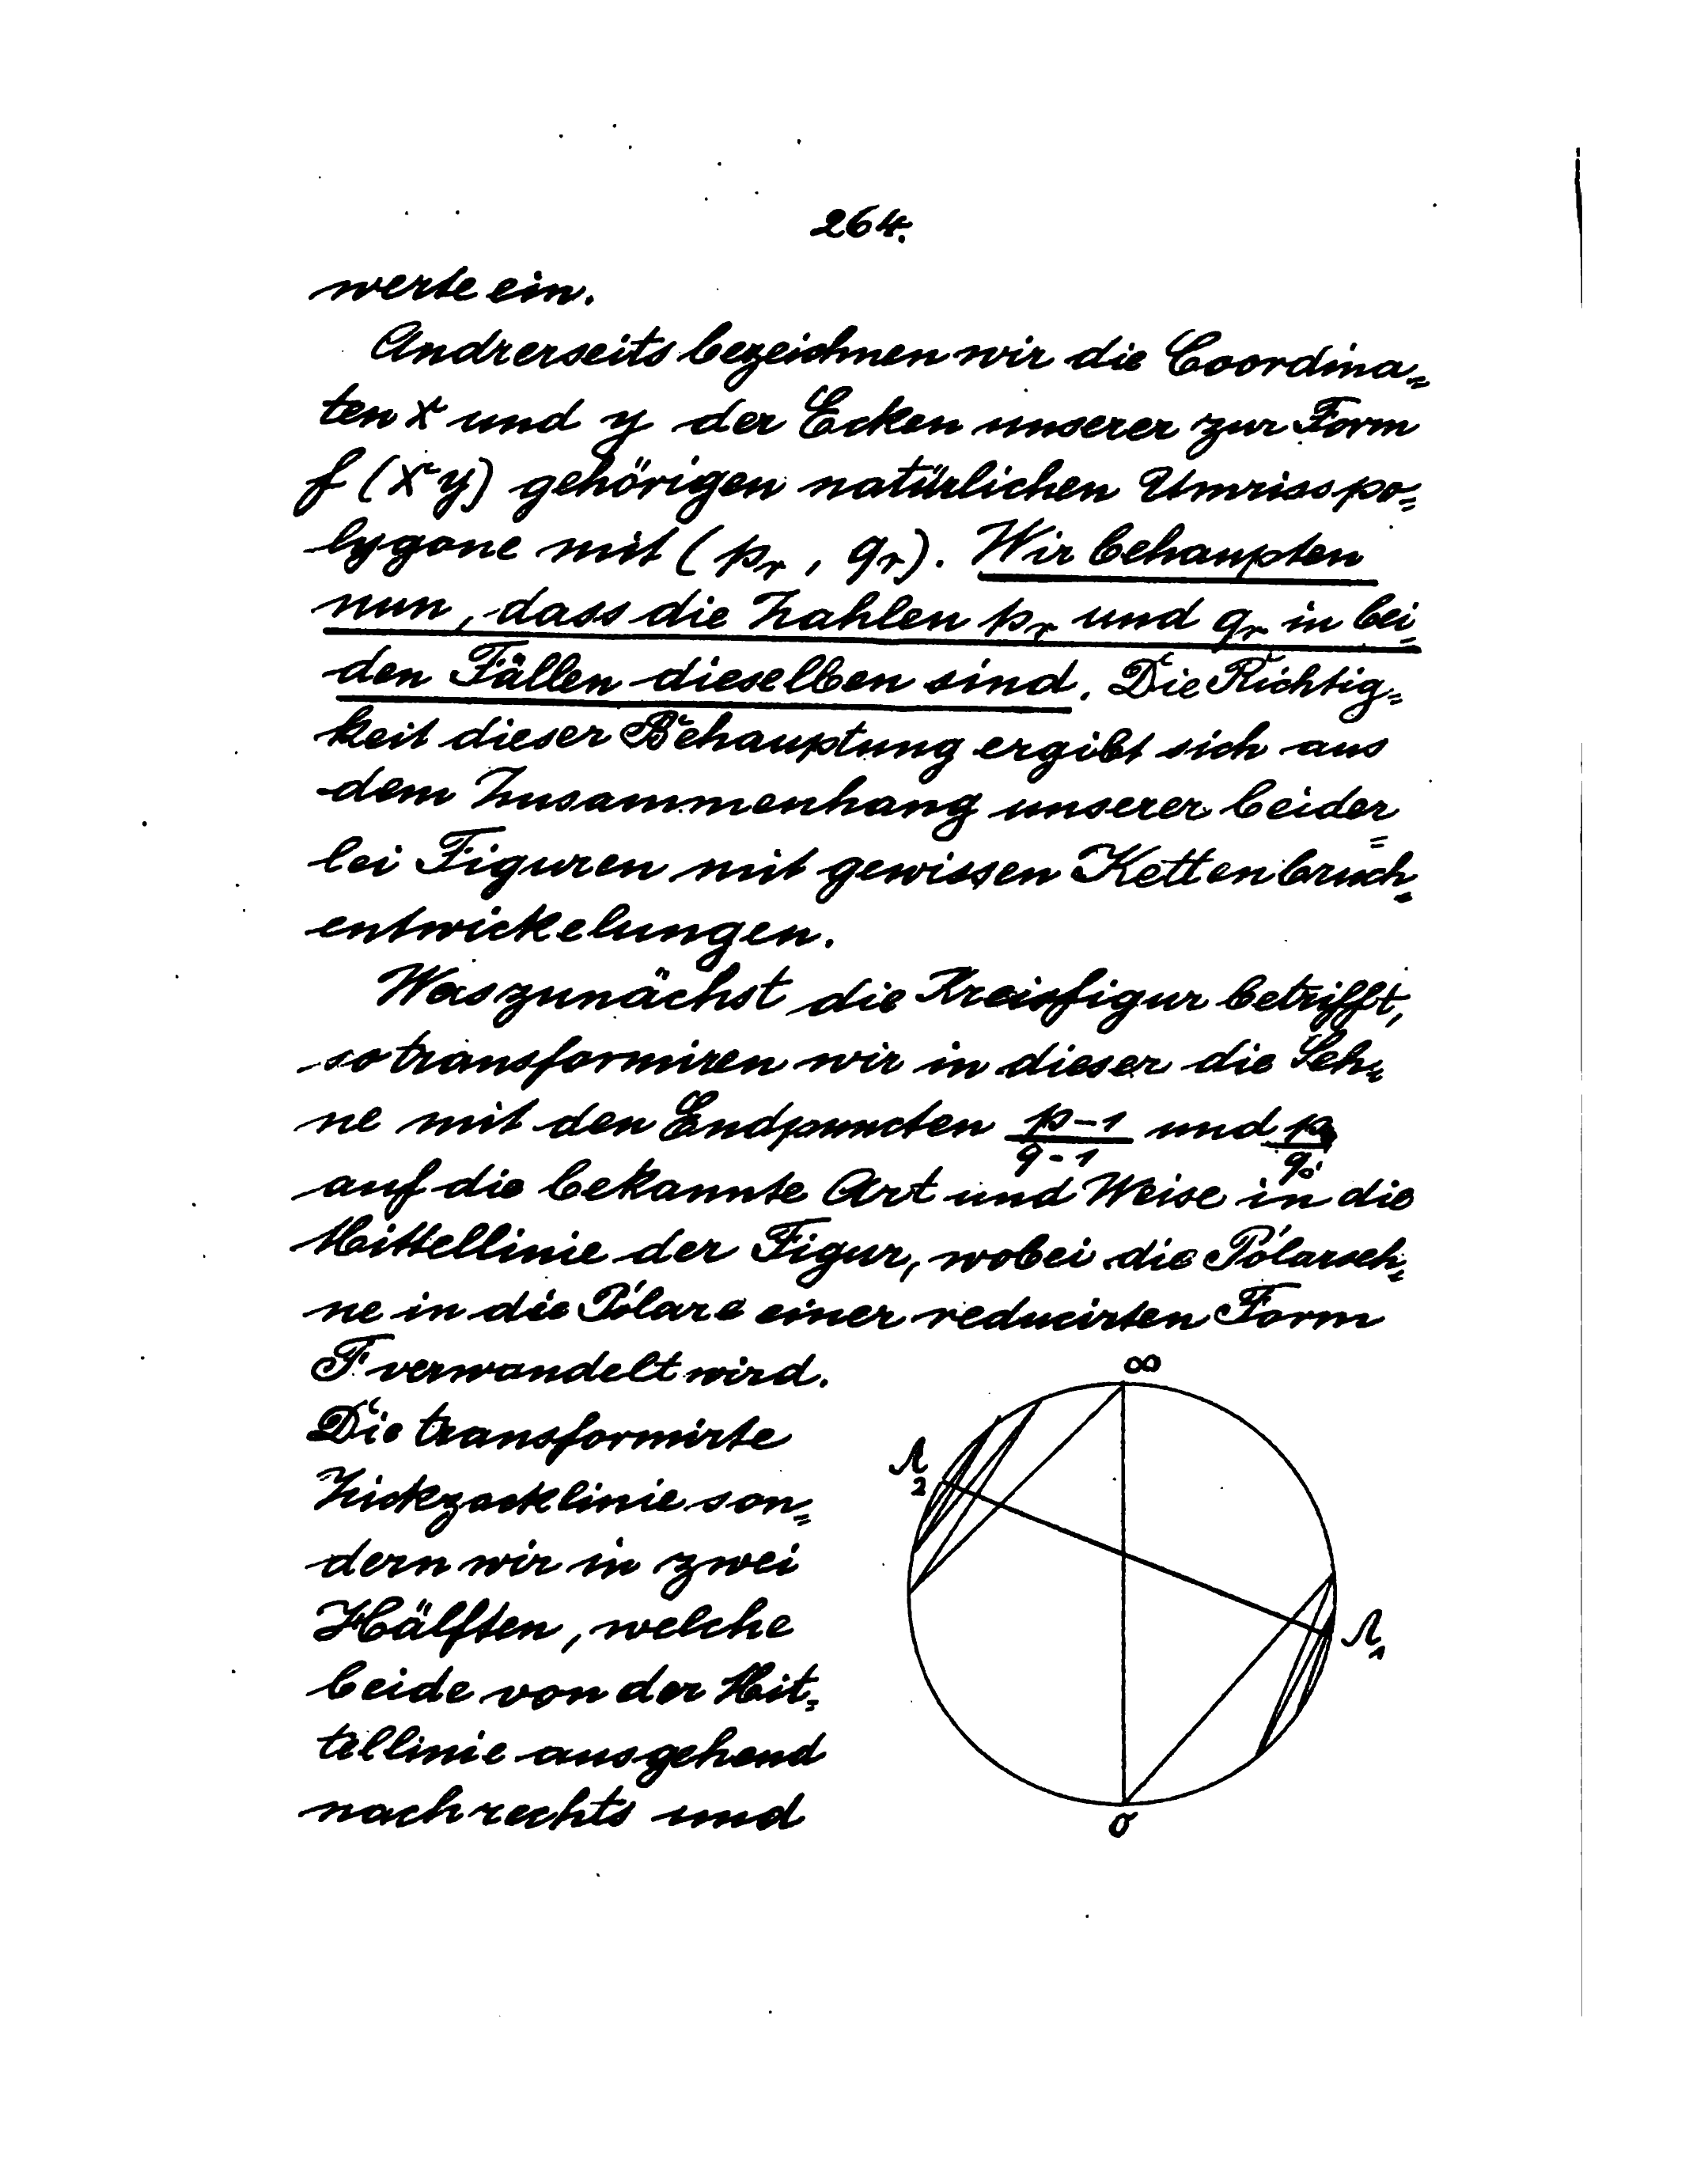 264.
werte ein.
Andrerseits bezeichnen wir die Coordina=
ten x und y der Ecken unserer zur Form
f (x y) gehörigen natürlichen Umrisspo=
lygone mit (p_r, q_r). Wir behaupten
nun, dass die Zahlen p_r und q_r in bei=
den Fällen dieselben sind. Die Richtig=
keit dieser Behauptung ergibt sich aus
dem Zusammenhang unserer beider=
lei Figuren mit gewissen Kettenbruch=
entwickelungen.
Was zunächst die Kreisfigur betrifft,
so transformiren wir in dieser die Seh=
ne mit den Endpuncten p_-1/q_-1 und p_0/q_0
auf die bekannte Art und Weise in die
Mittellinie der Figur, wobei die Polarseh=
ne in die Polare einer reducirten Form
F verwandelt wird.
Die transformirte
Zickzacklinie son=
dern wir in zwei
Hälften, welche
beide von der Mit=
tellinie ausgehend
nach rechts und
∞
Ω_2
Ω_1
0